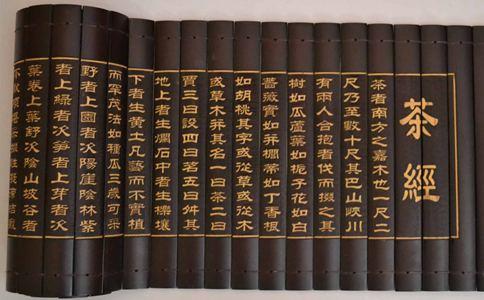 茶經
茶者南方之嘉木也一尺二
尺乃至數十尺其巴山峽川
有兩人合抱者伐而掇之其
樹如瓜蘆葉如梔子花如白
薔薇實如栟櫚蒂如丁香根
如胡桃其字或從草或從木
或草木并其名一曰茶二曰
賈三曰設四曰名五曰舛其
地上者生爛石中者生櫟壤
下者生黄土凡藝而不實植
而罕茂法如種瓜三歲可采
野者上園者次陽崖陰林紫
者上綠者次笋者上芽者次
葉卷上葉舒次陰山坡谷者